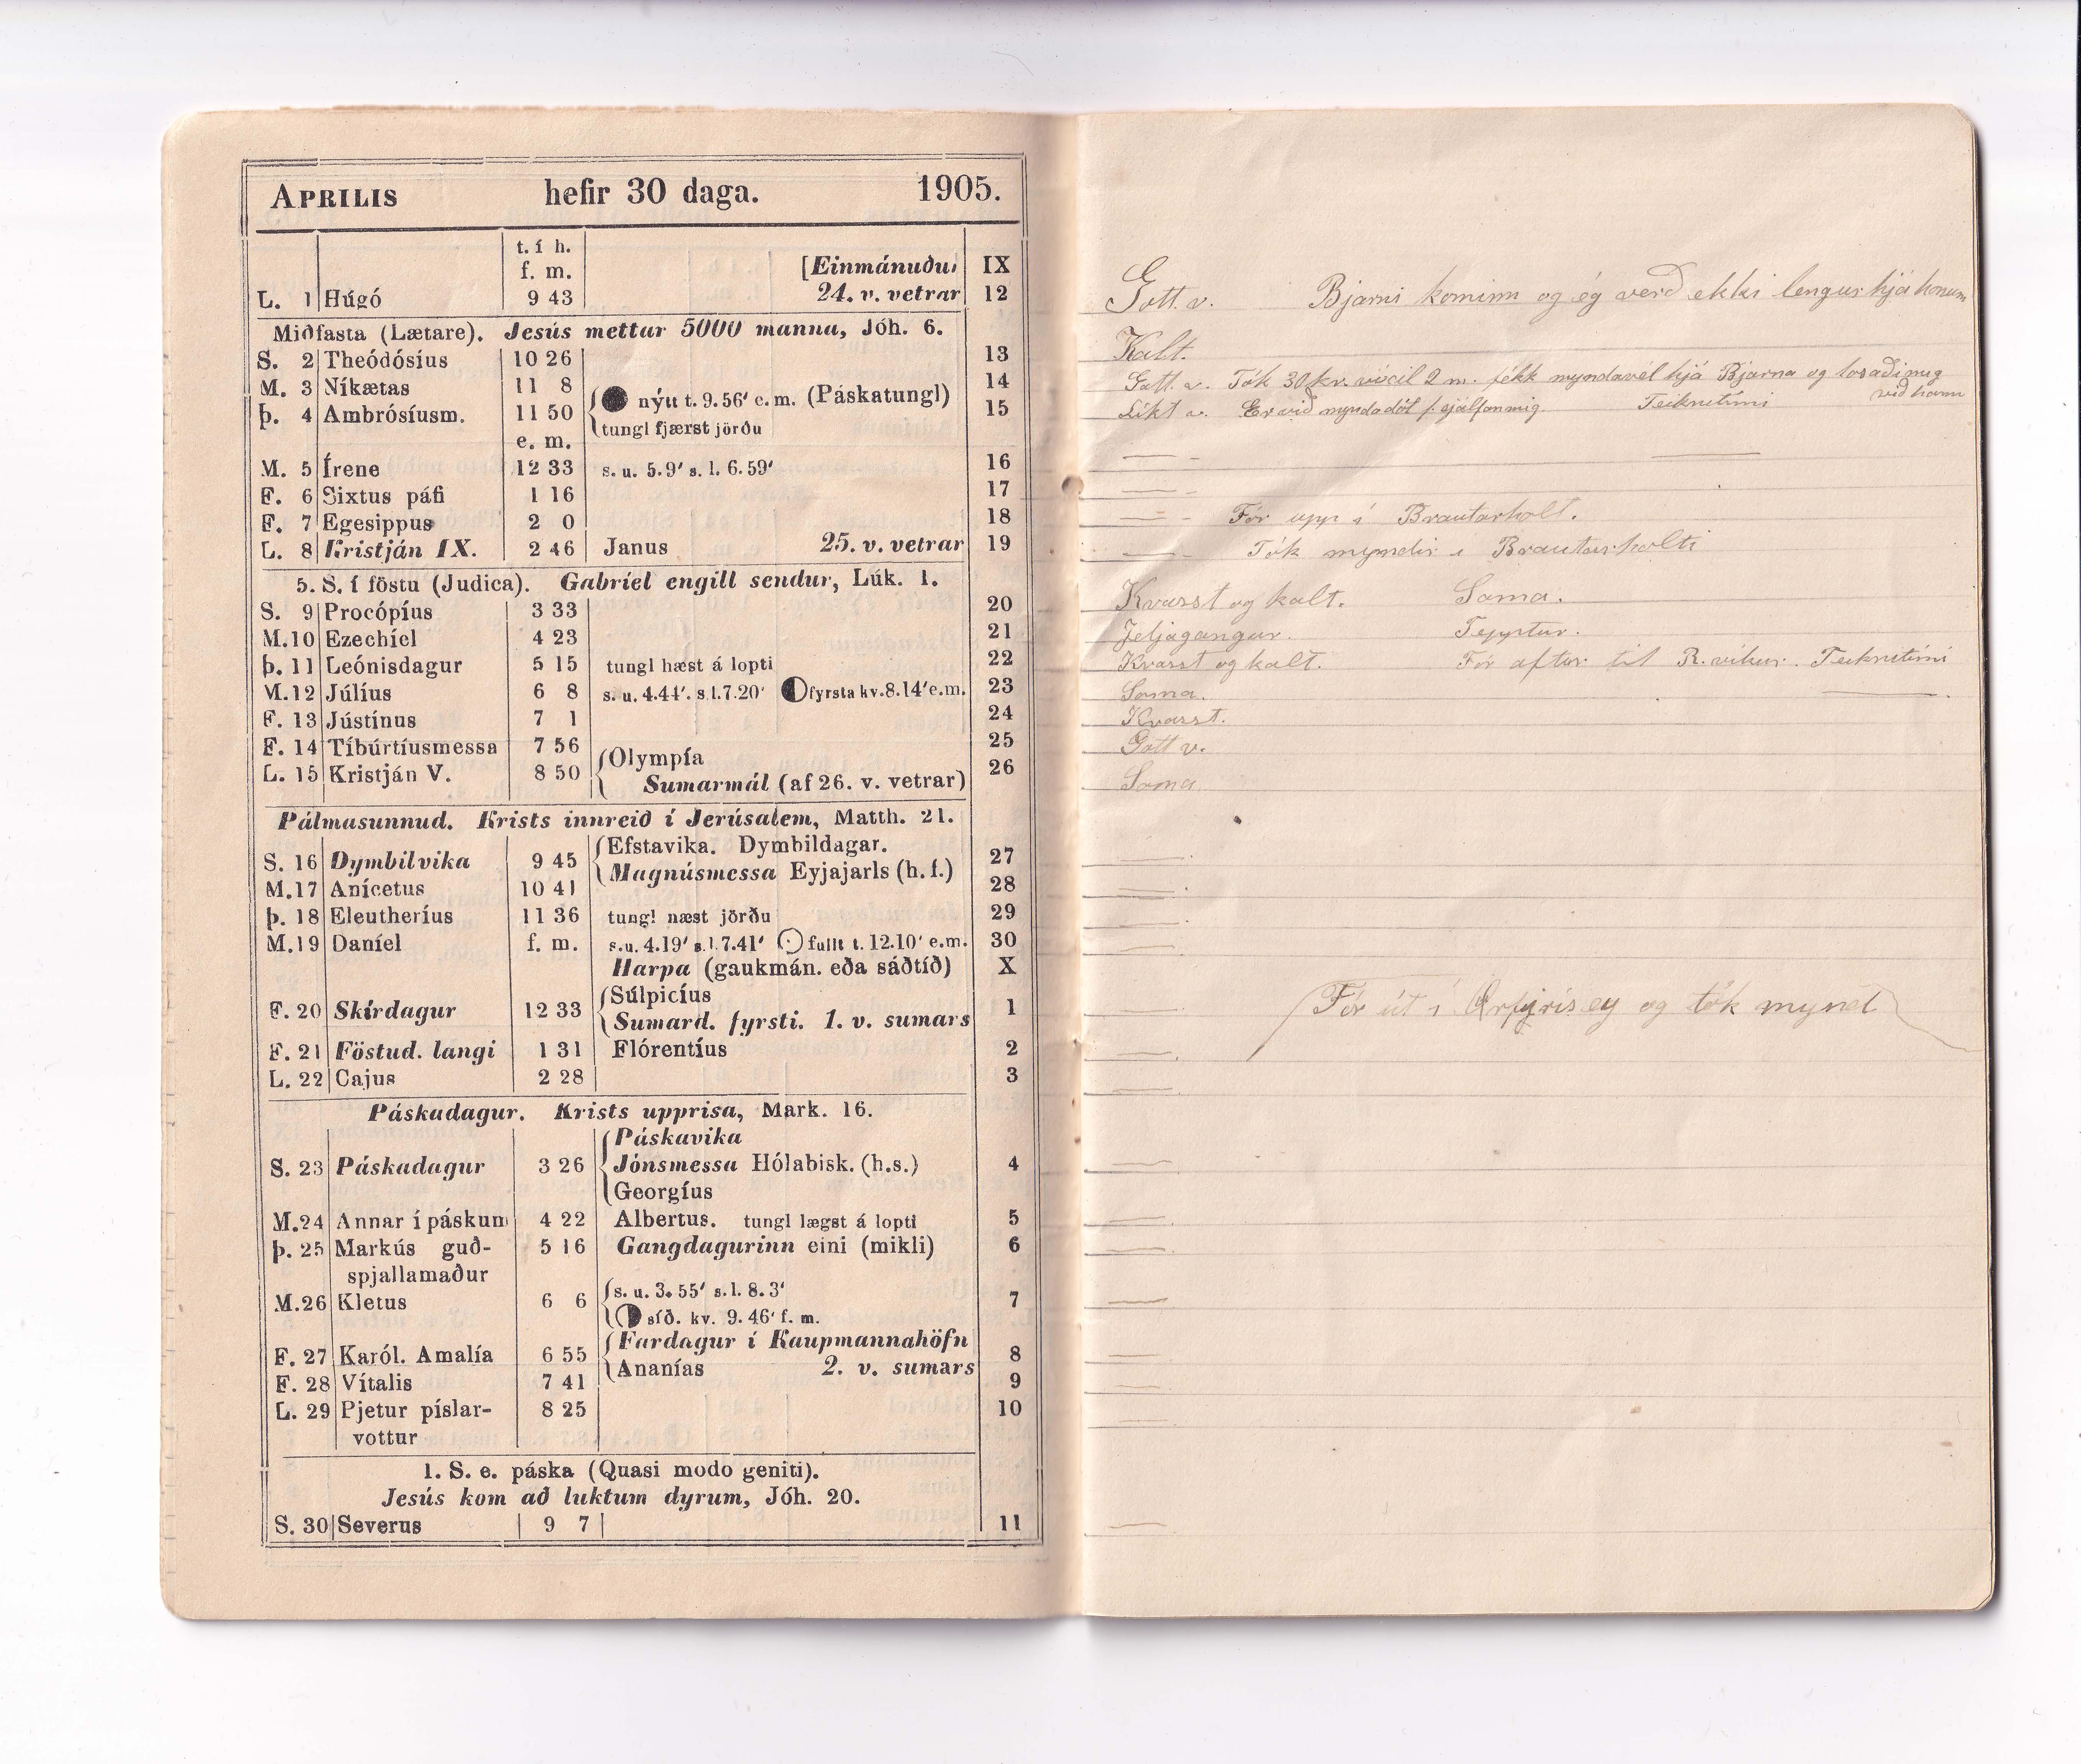 APRILIS hefir 30 daga. 1905.
t. í h.
f. m. [Einmánuðu IX
L. 1 Húgó 9 43 24. v. vetrar 12
Miðfasta (Lætare). Jesús mettar 5000 manna, Jóh. 6.
S. 2 Theódósíus 10 26 13
M. 3 Níkætas 11 8 14
nýtt t. 9.56' e. m. (Páskatungl)
þ. 4 Ambrósíusm. 11 50 15
tungl fjærst jörðu
e. m.
M. 5 Írene 12 33 s. u. 5.9' s. l. 6.59' 16
F. 6 Sixtus páfi 1 16 17
F. 7 Egesippus 2 0 18
L. 8 Kristján IX. 2 46 Janus 25. v. vetrar 19
5. S. í föstu (Judica). Gabríel engill sendur, Lúk. 1.
S. 9 Procópíus 3 33 20
M. 10 Ezechíel 4 23 21
þ. 11 Leónisdagur 5 15 tungl hæst á lopti 22
M. 12 Júlíus 6 8 s. u. 4.44'. s. l. 7.20' fyrsta kv. 8.14' e. m. 23
F. 13 Jústínus 7 1 24
F. 14 Tíbúrtíusmessa 7 56 25
Olympía
L. 15 Kristján V. 8 50 26
Sumarmál (af 26. v. vetrar)
Pálmasunnud. Krists innreið í Jerúsalem, Matth. 21.
Efstavika. Dymbildagar.
S. 16 Dymbilvika 9 45 27
Magnúsmessa Eyjajarls (h. f.)
M. 17 Anícetus 10 41 28
þ. 18 Eleutheríus 11 36 tungl næst jörðu 29
M. 19 Daníel f. m. s. u. 4.19' s. l. 7.41' fullt t. 12.10' e. m. 30
Harpa (gaukmán. eða sáðtíð) X
Súlpicíus
F. 20 Skírdagur 12 33 1
Sumard. fyrsti. 1. v. sumars
F. 21 Föstud. langi 1 31 Flórentíus 2
L. 22 Cajus 2 28 3
Páskadagur. Krists upprisa, Mark. 16.
Páskavika
S. 23 Páskadagur 3 26 Jónsmessa Hólabisk. (h. s.) 4
Georgíus
M. 24 Annar í páskum 4 22 Albertus. tungl lægst á lopti 5
þ. 25 Markús guð- 5 16 Gangdagurinn eini (mikli) 6
spjallamaður
s. u. 3.55' s. l. 8.3'
M. 26 Kletus 6 6 7
síð. kv. 9.46' f. m.
Fardagur í Kaupmannahöfn
F. 27 Karól. Amalía 6 55 8
Ananías 2. v. sumars
F. 28 Vítalis 7 41 9
L. 29 Pjetur píslar- 8 25 10
vottur
1. S. e. páska (Quasi modo geniti).
Jesús kom að luktum dyrum, Jóh. 20.
S. 30 Severus 9 7 11
Gott v. Bjarni kominn og ég verð ekki lengur hjá honum
Kalt.
Gott v. Tók 30 kr. 2 m. fékk myndavél hjá Bjarna og losaði mig
við hann
Líkt v. Er við myndadót f. sjálfan mig. Teiknitími
Fór upp í Brautarholt.
Tók myndir í Brautarholti
Kvasst og kalt. Sama.
Jeljagangur. Tepptur.
Kvasst og kalt. Fór aftur til R.víkur. Teiknitími
Sama.
Kvasst.
Gott v.
Sama
Fór út í Örfjrisey og tók mynd